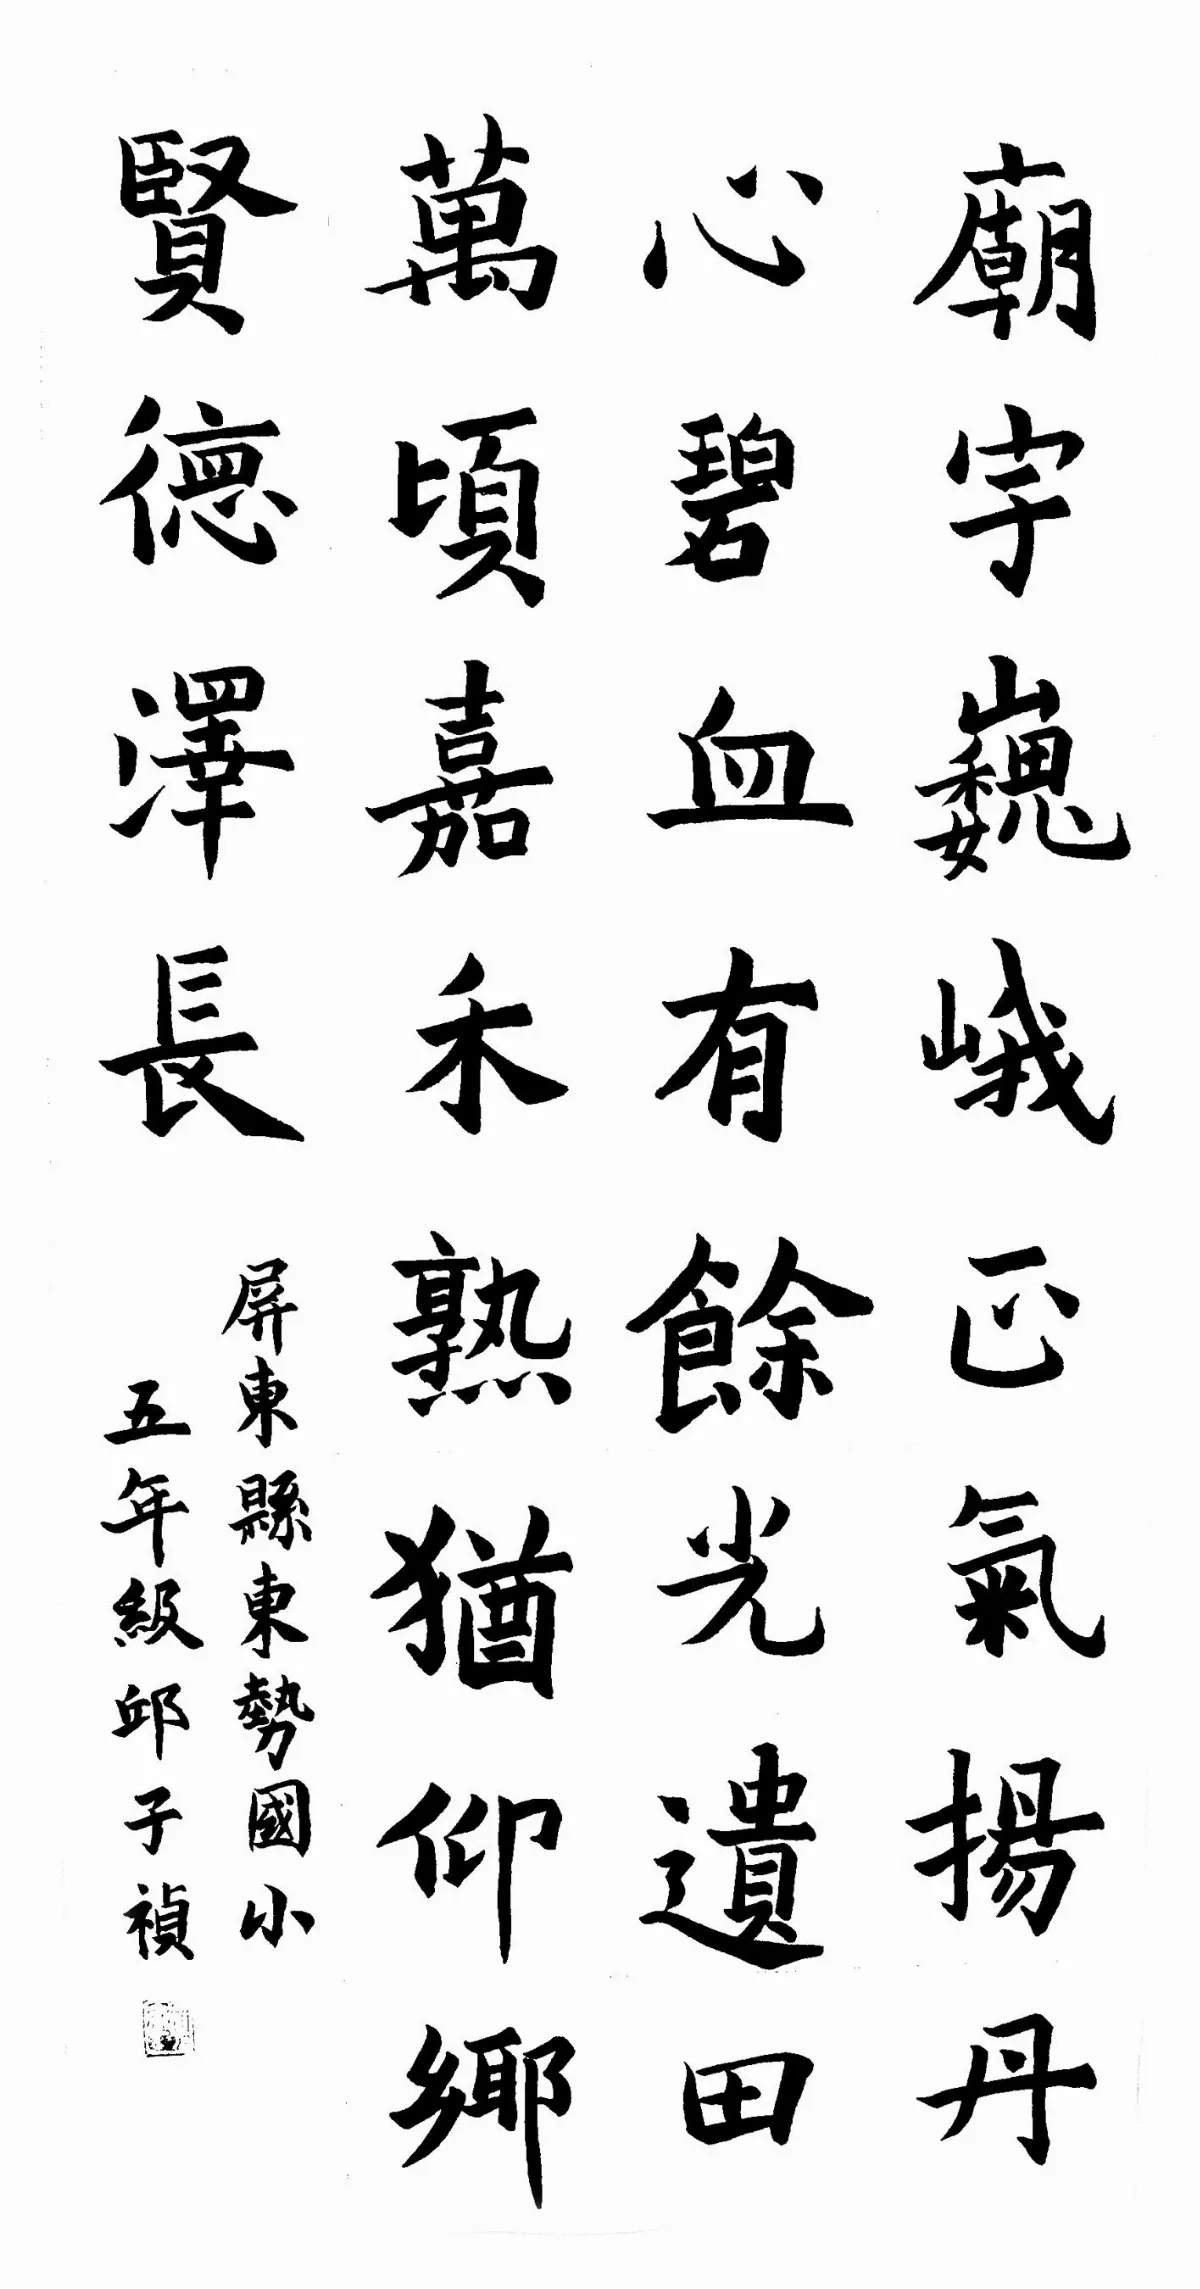 廟宇巍峨正氣揚丹
心碧血有餘光遺田
萬頃嘉禾熟猶仰鄉
賢德澤長
屏東縣東勢國小
五年級邱子禎